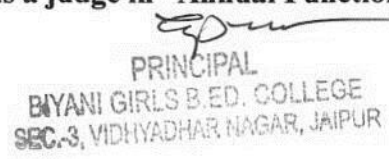 as a judge in "Annual Function
PRINCIPAL
BIYANI GIRLS B.ED. COLLEGE
SEC.-3, VIDHYADHAR NAGAR, JAIPUR